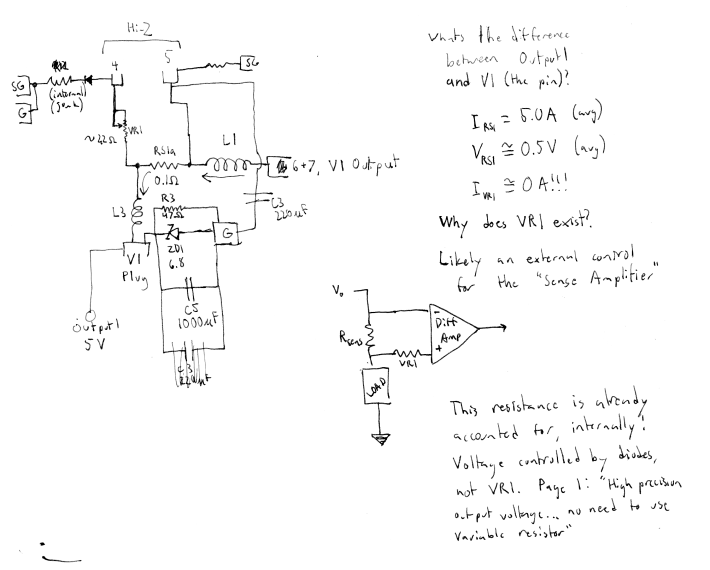 Hi-Z
4
5
SG
SG
G
(internal)
(junk)
~22Ω
VR1
L1
RS1a
0.1Ω
6+7, V1 Output
C3
220uF
L3
R3
47Ω
ZD1
6.8
G
V1
Plug
C5
1000uF
Output1
5V
C3
220uF
Whats the difference
between Output1
and V1 (the pin)?
I RS1 ≅ 5.0A (avg)
V RS1 ≅ 0.5V (avg)
I VR1 ≅ 0A!!!
Why does VR1 exist?
Likely an external control
for the "Sense Amplifier"
Vo
Rsens
VR1
-
Diff
Amp
+
LOAD
This resistance is already
accounted for, internally!
Voltage controlled by diodes,
not VR1. Page 1: "High precision
output voltage... no need to use
variable resistor"